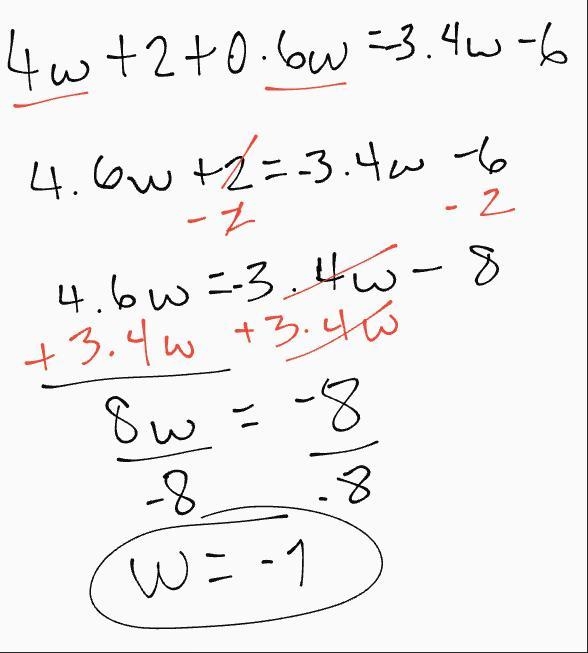 4w+2+0.6w=-3.4w-6
4.6w+2=-3.4w-6
-2 -2
4.6w=-3.4w-8
+3.4w +3.4w
8w = -8
-8 -8
w=-1